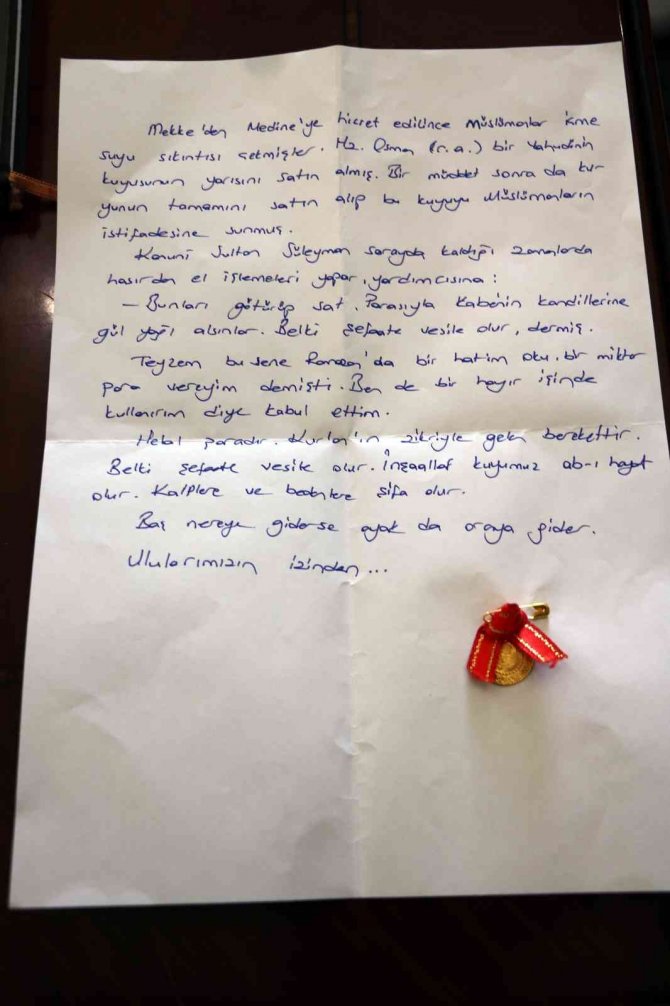 Mekke'den Medine'ye hicret edilince Müslümanlar içme
suyu sıkıntısı çekmişler. Hz. Osman (r.a.) bir Yahudinin
kuyusunun yarısını satın almış. Bir müddet sonra da ku-
yunun tamamını satın alıp bu kuyuyu Müslümanların
istifadesine sunmuş.
Kanuni Sultan Süleyman sarayda kaldığı zamanlarda
hasırdan el işlemeleri yapar, yardımcısına:
– Bunları götürüp sat. Parasıyla Kabe'nin kandillerine
gül yağı alsınlar. Belki şefaate vesile olur, dermiş.
Teyzem bu sene Ramazan'da bir hatim oku. bir miktar
para vereyim demişti. Ben de bir hayır işinde
kullanırım diye kabul ettim.
Helal paradır. Kur'an'ın zikriyle gelen berekettir.
Belki şefaate vesile olur. İnşaallah kuyumuz ab-ı hayat
olur. Kalplere ve bedenlere şifa olur.
Baş nereye giderse ayak da oraya gider.
Ulularımızın izinden...